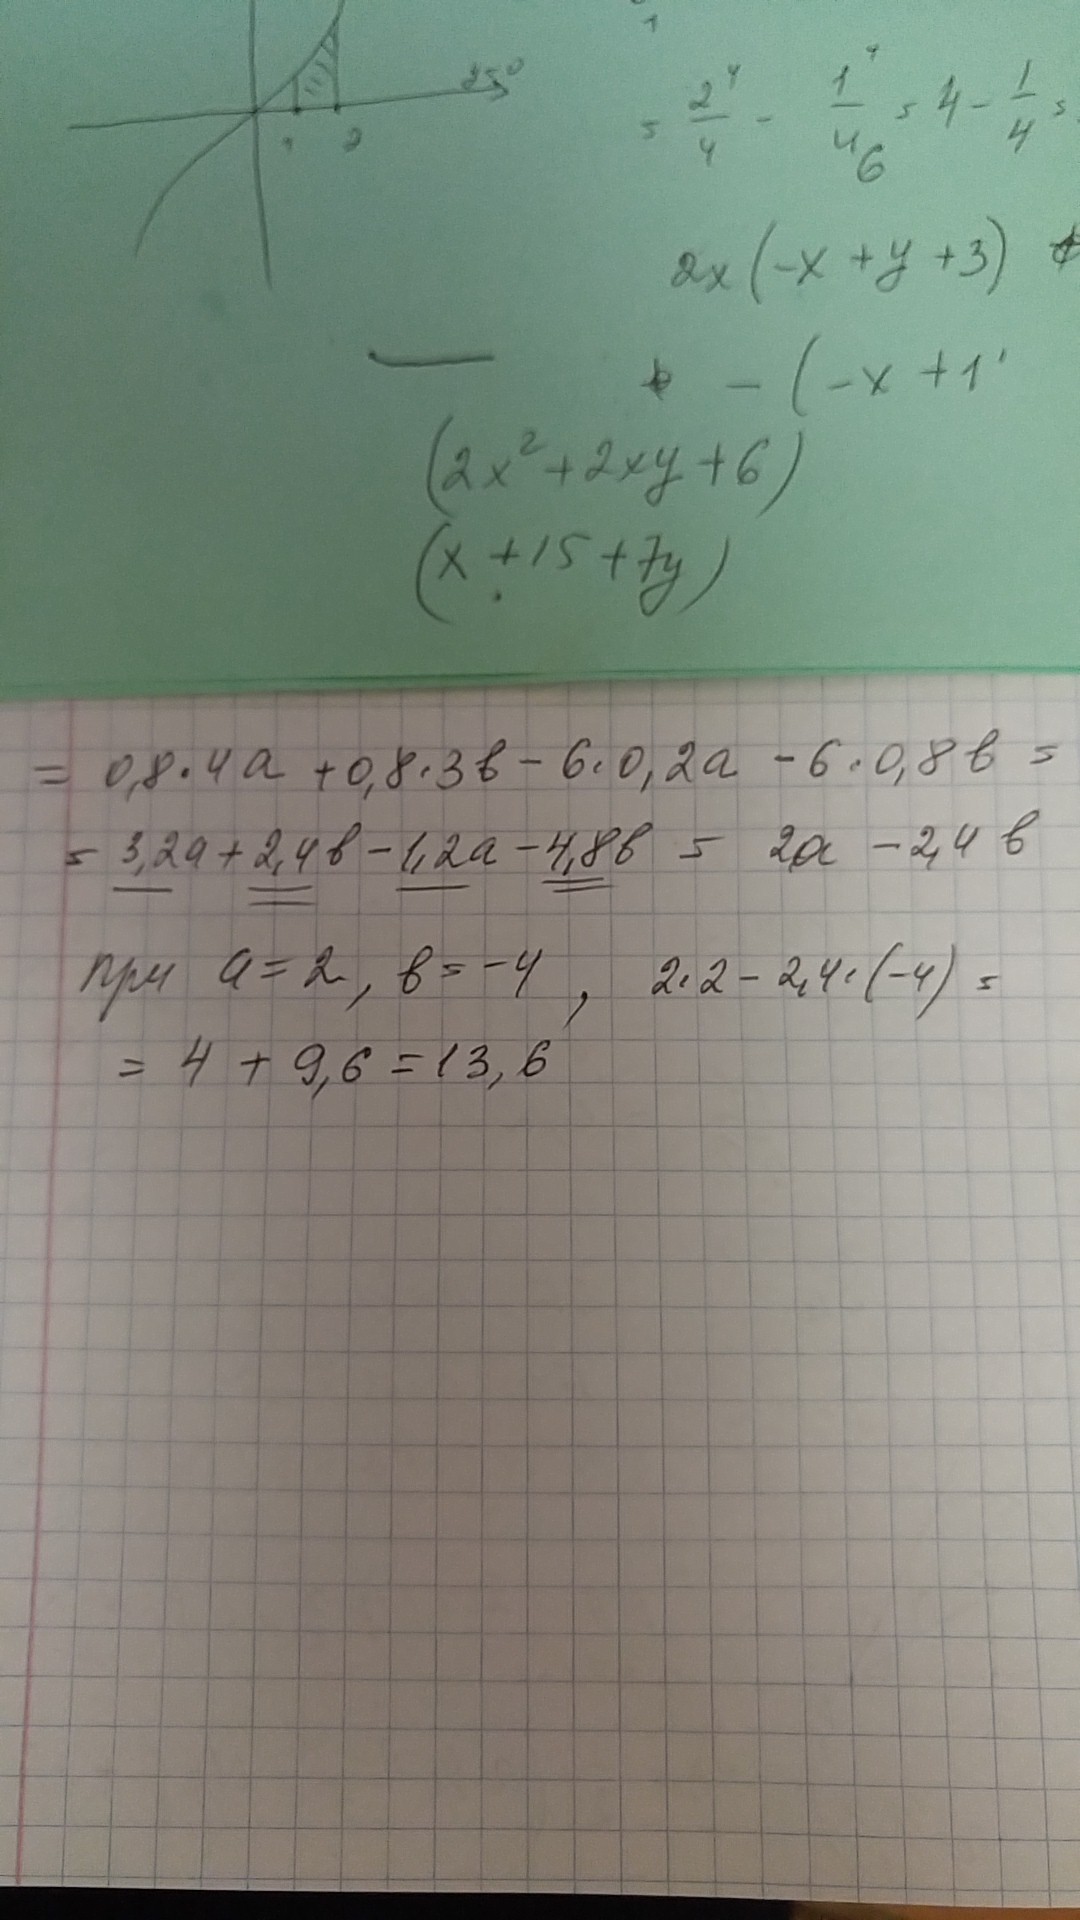 1
= 2⁴/4 - 1⁴/4 = 4 - 1/4 =
1 2
6
2x(-x+y+3)
- (-x+1
(2x²+2xy+6)
(x+15+7y)
= 0,8·4a+0,8·3в-6·0,2a-6·0,8в=
= 3,2a+2,4в-1,2a-4,8в = 2a-2,4в
при a=2, в=-4, 2·2-2,4·(-4)=
= 4+9,6=13,6